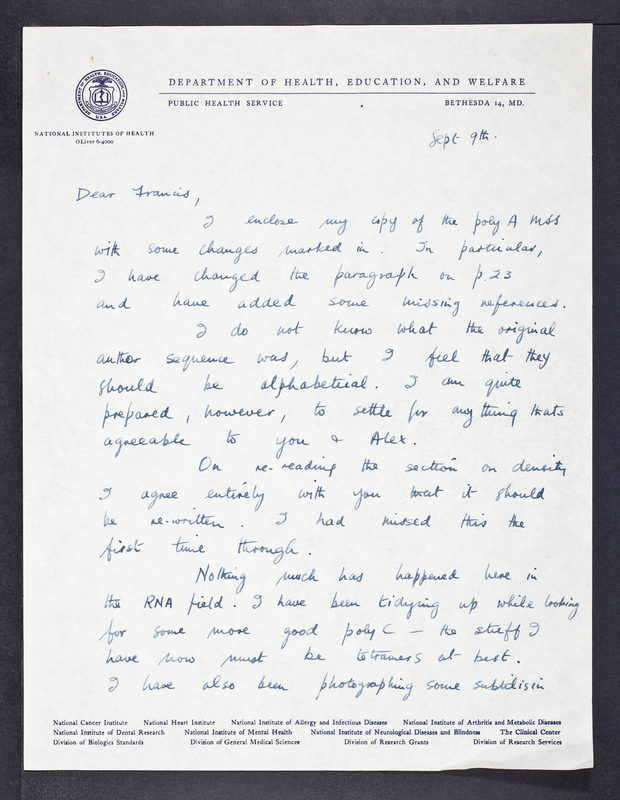 DEPARTMENT OF HEALTH, EDUCATION, AND WELFARE
PUBLIC HEALTH SERVICE BETHESDA 14, MD.
DEPARTMENT OF HEALTH, EDUCATION, AND WELFARE U.S.A.
NATIONAL INSTITUTES OF HEALTH
OLiver 6-4000
Sept 9th.
Dear Francis,
I enclose my copy of the poly A MSS
with some changes marked in. In particular,
I have changed the paragraph on p. 23
and have added some missing references.
I do not know what the original
author sequence was, but I feel that they
should be alphabetical. I am quite
prepared, however, to settle for anything thats
agreeable to you & Alex.
On re-reading the section on density
I agree entirely with you that it should
be re-written. I had missed this the
first time through.
Nothing much has happened here in
the RNA field. I have been tidying up while looking
for some more good poly C — the stuff I
have now must be tetramers at best.
I have also been photographing some subtilisin
National Cancer Institute National Heart Institute National Institute of Allergy and Infectious Diseases National Institute of Arthritis and Metabolic Diseases
National Institute of Dental Research National Institute of Mental Health National Institute of Neurological Diseases and Blindness The Clinical Center
Division of Biologics Standards Division of General Medical Sciences Division of Research Grants Division of Research Services